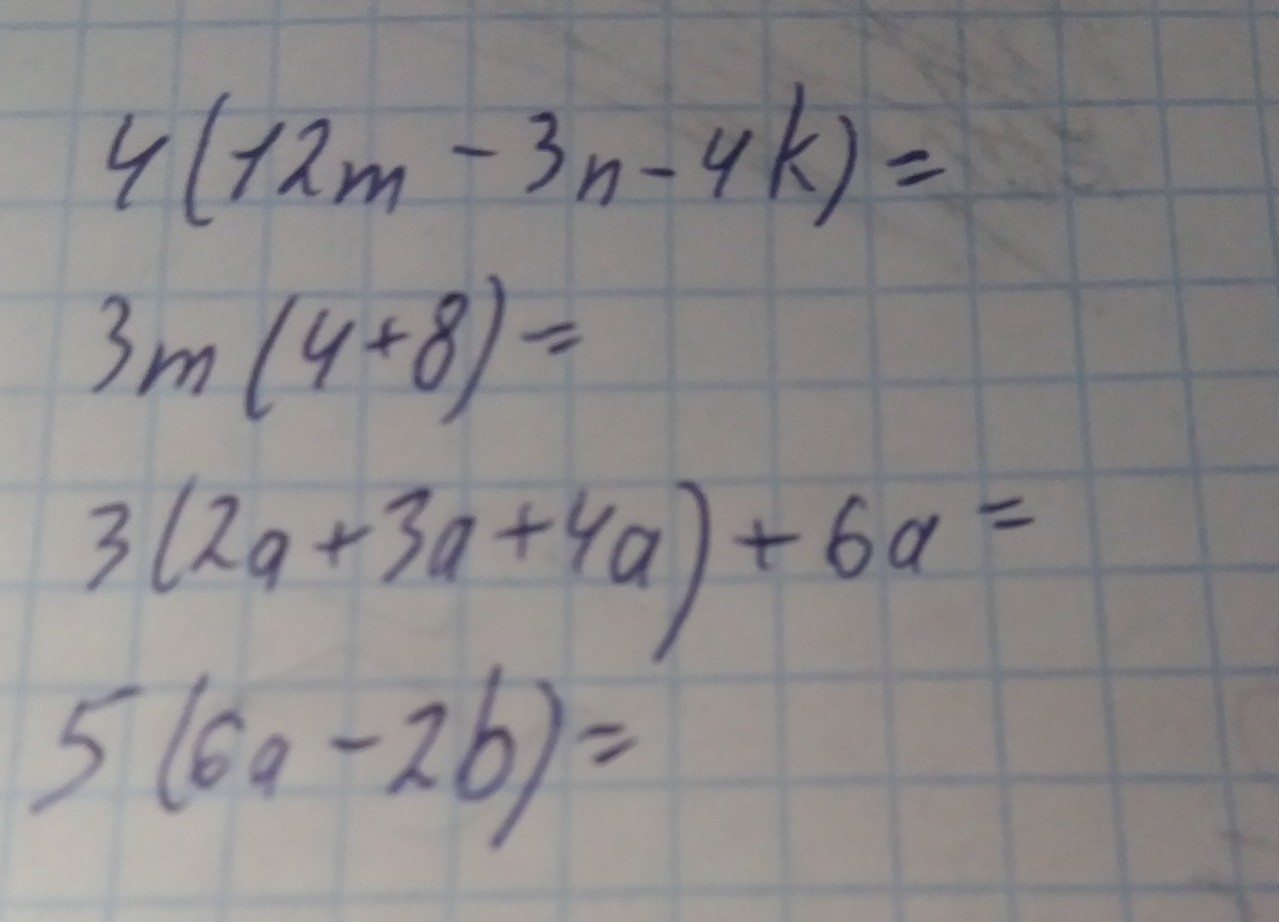 4(12m - 3n - 4k) =
3m(4+8) =
3(2a + 3a + 4a) + 6a =
5(6a - 2b) =